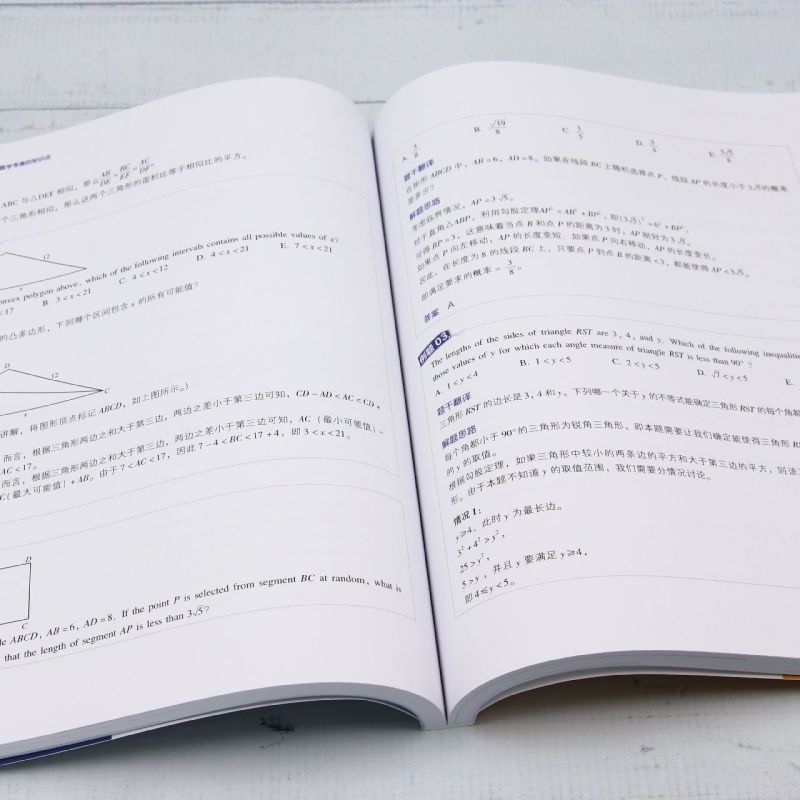 数学考查的知识点
ABC 与△DEF 相似，那么 AB/DE = BC/EF = AC/DF。
个三角形相似，那么这两个三角形的面积比等于相似比的平方。
12
x
convex polygon above, which of the following intervals contains all possible values of x?
<17 B. 3<x<21 C. 4<x<12 D. 4<x<21 E. 7<x<21
的凸多边形，下列哪个区间包含 x 的所有可能值？
D
12
C
x
讲解，将图形顶点标记 ABCD，如上图所示。)
而言，根据三角形两边之和大于第三边，两边之差小于第三边可知，CD-AD<AC<CD+
AC<17。
而言，根据三角形两边之和大于第三边，两边之差小于第三边可知，AC (最小可能值)-
C(最大可能值)+AB。由于 7<AC<17，因此 7-4<BC<17+4，即 3<x<21。
D
C
le ABCD, AB=6, AD=8. If the point P is selected from segment BC at random, what is
that the length of segment AP is less than 3√5?
A. 3/8 B. √19/8 C. 3/5 D. 3/4 E. 3√5/8
题干翻译
在矩形 ABCD 中，AB=6，AD=8。如果在线段 BC 上随机选择点 P，线段 AP 的长度小于 3√5的概率
是多少？
解题思路
考虑临界情况，AP=3√5。
对于直角△ABP，利用勾股定理AP²=AB²+BP²，即(3√5)²=6²+BP²，
可得 BP=3，这意味着当点 B 和点 P 的距离为 3 时，AP 刚好为 3√5。
如果点 P 向左移动，AP 的长度变短；如果点 P 向右移动，AP 的长度变长。
因此，在长度为 8 的线段 BC 上，只要点 P 到点 B 的距离<3，都能使得 AP<3√5。
即满足要求的概率= 3/8。
答案 A
例题 03.
The lengths of the sides of triangle RST are 3, 4, and y. Which of the following inequalities
those values of y for which each angle measure of triangle RST is less than 90°?
A. 1<y<4 B. 1<y<5 C. 2<y<5 D. √7<y<5 E.
题干翻译
三角形 RST 的边长是 3，4 和 y。下列哪一个关于 y 的不等式能确定三角形 RST 的每个角都
解题思路
每个角都小于 90°的三角形为锐角三角形，即本题需要让我们确定能使得三角形 RS
的 y 的取值。
根据勾股定理，如果三角形中较小的两条边的平方和大于第三边的平方，则该三
形。由于本题不知道 y 的取值范围，我们需要分情况讨论。
情况 1：
y≥4，此时 y 为最长边。
3²+4²>y²，
25>y²，
5>y，并且 y 要满足 y≥4，
即 4≤y<5。